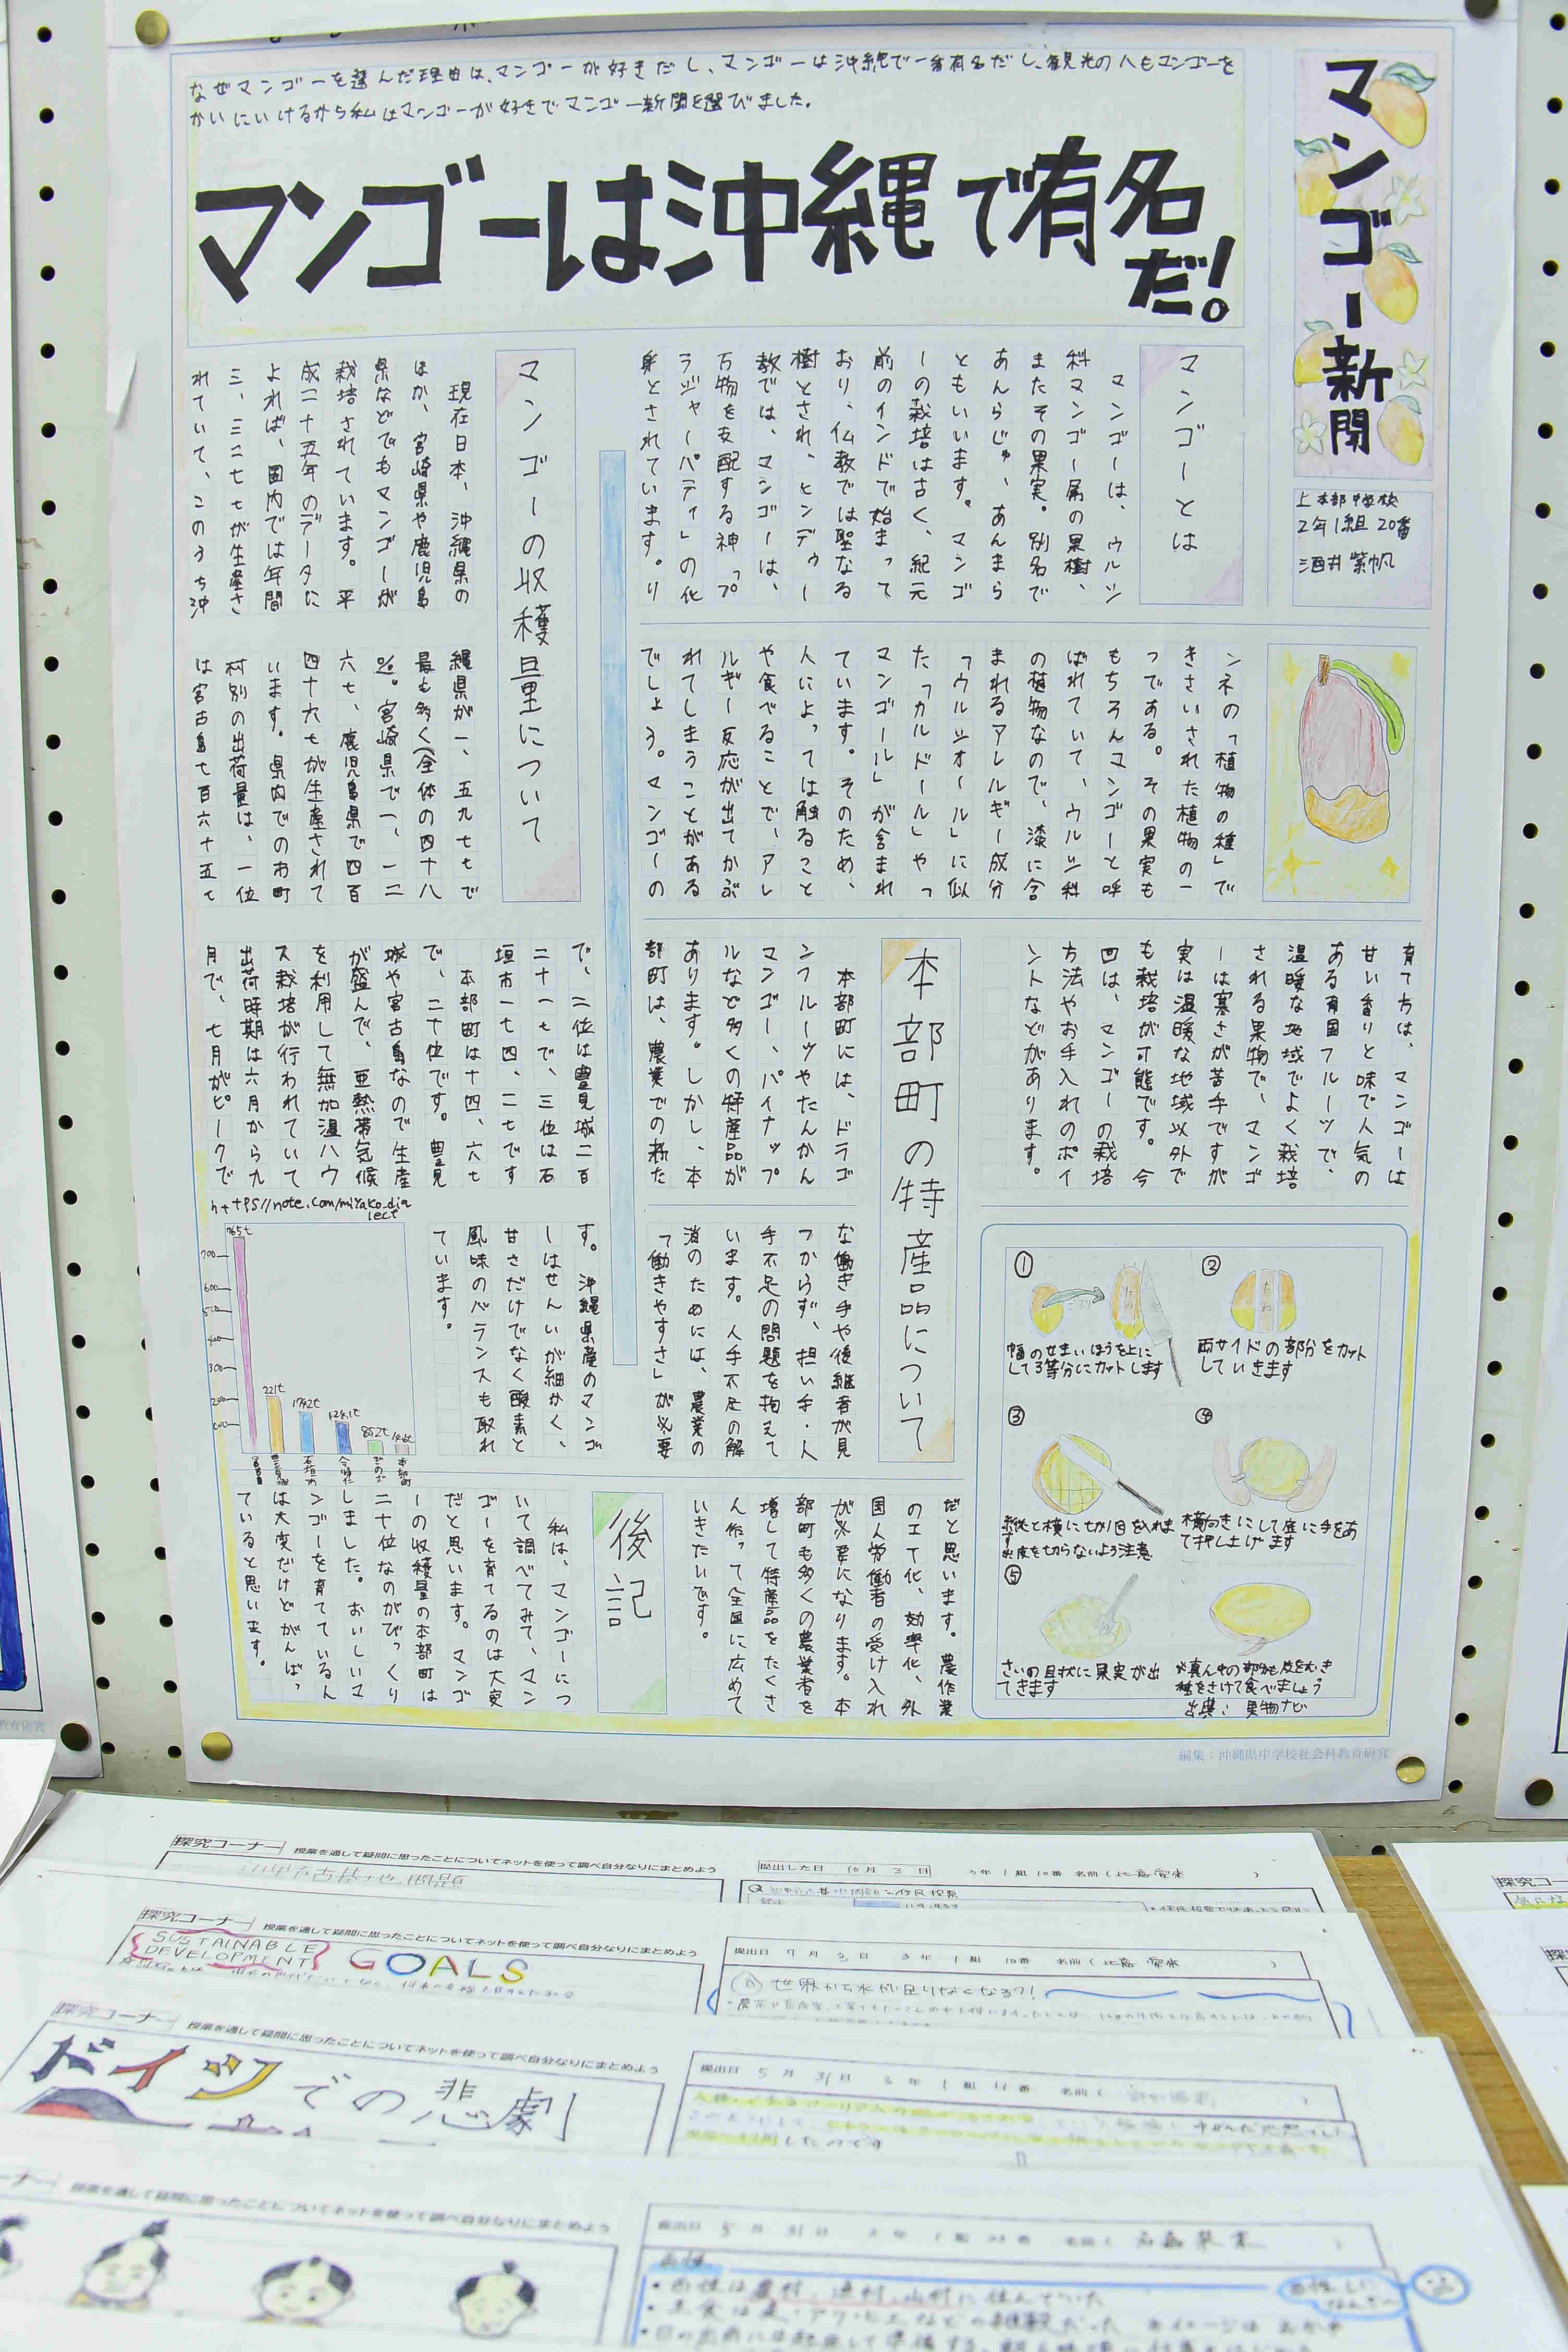 マンゴー新聞
上本部中学校
2年1組 20番
酒井紫帆
なぜマンゴーを選んだ理由は、マンゴーが好きだし、マンゴーは沖縄で一番有名だし、観光の人もマンゴーを
かいにいけるから私はマンゴーが好きでマンゴー新聞を選びました。
マンゴーは沖縄で有名
だ!
マンゴーとは
マンゴーは、ウルシ
科マンゴー属の果樹、
またその果実。別名で
あんらじゅ、あんまら
ともいいます。マンゴ
ーの栽培は古く、紀元
前のインドで始まって
おり、仏教では聖なる
樹とされ、ヒンドゥー
教では、マンゴーは、
万物を支配する神「プ
ラジャーパティ」の化
身とされています。リ
ンネの「植物の種」で
きさいされた植物の一
つである。その果実も
もちろんマンゴーと呼
ばれていて、ウルシ科
の植物なので、漆に含
まれるアレルギー成分
「ウルシオール」に似
た「カルドール」やっ
マンゴール」が含まれ
ています。そのため、
人によっては触ること
や食べることで、アレ
ルギー反応が出てかぶ
れてしまうことがある
でしょう。マンゴーの
育て方は、マンゴーは
甘い香りと味で人気の
ある南国フルーツで、
温暖な地域でよく栽培
される果物で、マンゴ
ーは寒さが苦手ですが
実は温暖な地域以外で
も栽培が可能です。今
回は、マンゴーの栽培
方法やお手入れのポイ
ントなどがあります。
本部町の特産品について
本部町には、ドラゴ
ンフルーツやたんかん
マンゴー、パイナップ
ルなど多くの特産品が
あります。しかし、本
部町は、農業での新た
な働き手や後継者が見
つからず、担い手・人
手不足の問題を抱えて
います。人手不足の解
消のためには、農業の
「働きやすさ」が必要
だと思います。農作業
のIT化、効率化、外
国人労働者の受け入れ
が必要になります。本
部町も多くの農業者を
増して特産品をたくさ
ん作って全国に広めて
いきたいです。
マンゴーの収穫量について
現在日本、沖縄県の
ほか、宮崎県や鹿児島
県などでもマンゴーが
栽培されています。平
成二十五年のデータに
よれば、国内では年間
三、三二七tが生産さ
れていて、このうち沖
縄県が一、五九七tで
最も多く(全体の四十八
%。宮崎県で一、一二
六t、鹿児島県で四百
四十六tが生産されて
います。県内での市町
村別の出荷量は、一位
は宮古島七百六十五t
で、二位は豊見城二百
二十一tで、三位は石
垣市一七四、二tです
本部町は十四、六t
で、二十位です。豊見
城や宮古島なので生産
が盛んで、亜熱帯気候
を利用して無加温ハウ
ス栽培が行われていて
出荷時期は六月から九
月で、七月がピークで
す。沖縄県産のマンゴ
ーはせんいが細かく、
甘さだけでなく酸素と
風味のバランスも取れ
ています。
https//note.com/miyako_dia
lect
765t
221t
174.2t
124.1t
85.2t
14.6t
700
600
500
400
300
200
100
宮古島
豊見城
石垣市
本部町
後記
私は、マンゴーにつ
いて調べてみて、マン
ゴーを育てるのは大変
だと思います。マンゴ
ーの収穫量の本部町は
二十位なのがびっくり
しました。おいしいマ
ンゴーを育てているん
は大変だけどがんばっ
ていると思います。
①
幅のせまいほうを上に
して3等分にカットします
②
たね
両サイドの部分をカット
していきます
③
縦と横に切り目を入れま
す
※皮を切らないよう注意
④
横向きにして底に手をあ
て押し上げます
⑤
さいの目状に果実が出
てきます
※真ん中の部分も皮をむき
種をさけて食べましょう
出典:果物ナビ
編集:沖縄県中学校社会科教育研究
探究コーナー 授業を通して疑問に思ったことについてネットを使って調べ自分なりにまとめよう
提出した日 10月3日 3年1組10番 名前(比嘉
探究コーナー 授業を通して疑問に思ったことについてネットを使って調べ自分なりにまとめよう
SUSTAINABLE
DEVELOPMENT GOALS
提出日 9月3日 3年1組10番 名前(比嘉
世界から水が足りなくなる?!
探究コーナー 授業を通して疑問に思ったことについてネットを使って調べ自分なりにまとめよう
ドイツでの悲劇
提出日 5月31日 3年1組11番 名前(
したのです
コーナー 授業を通して疑問に思ったことについてネットを使って調べ自分なりにまとめよう
提出日 5月31日